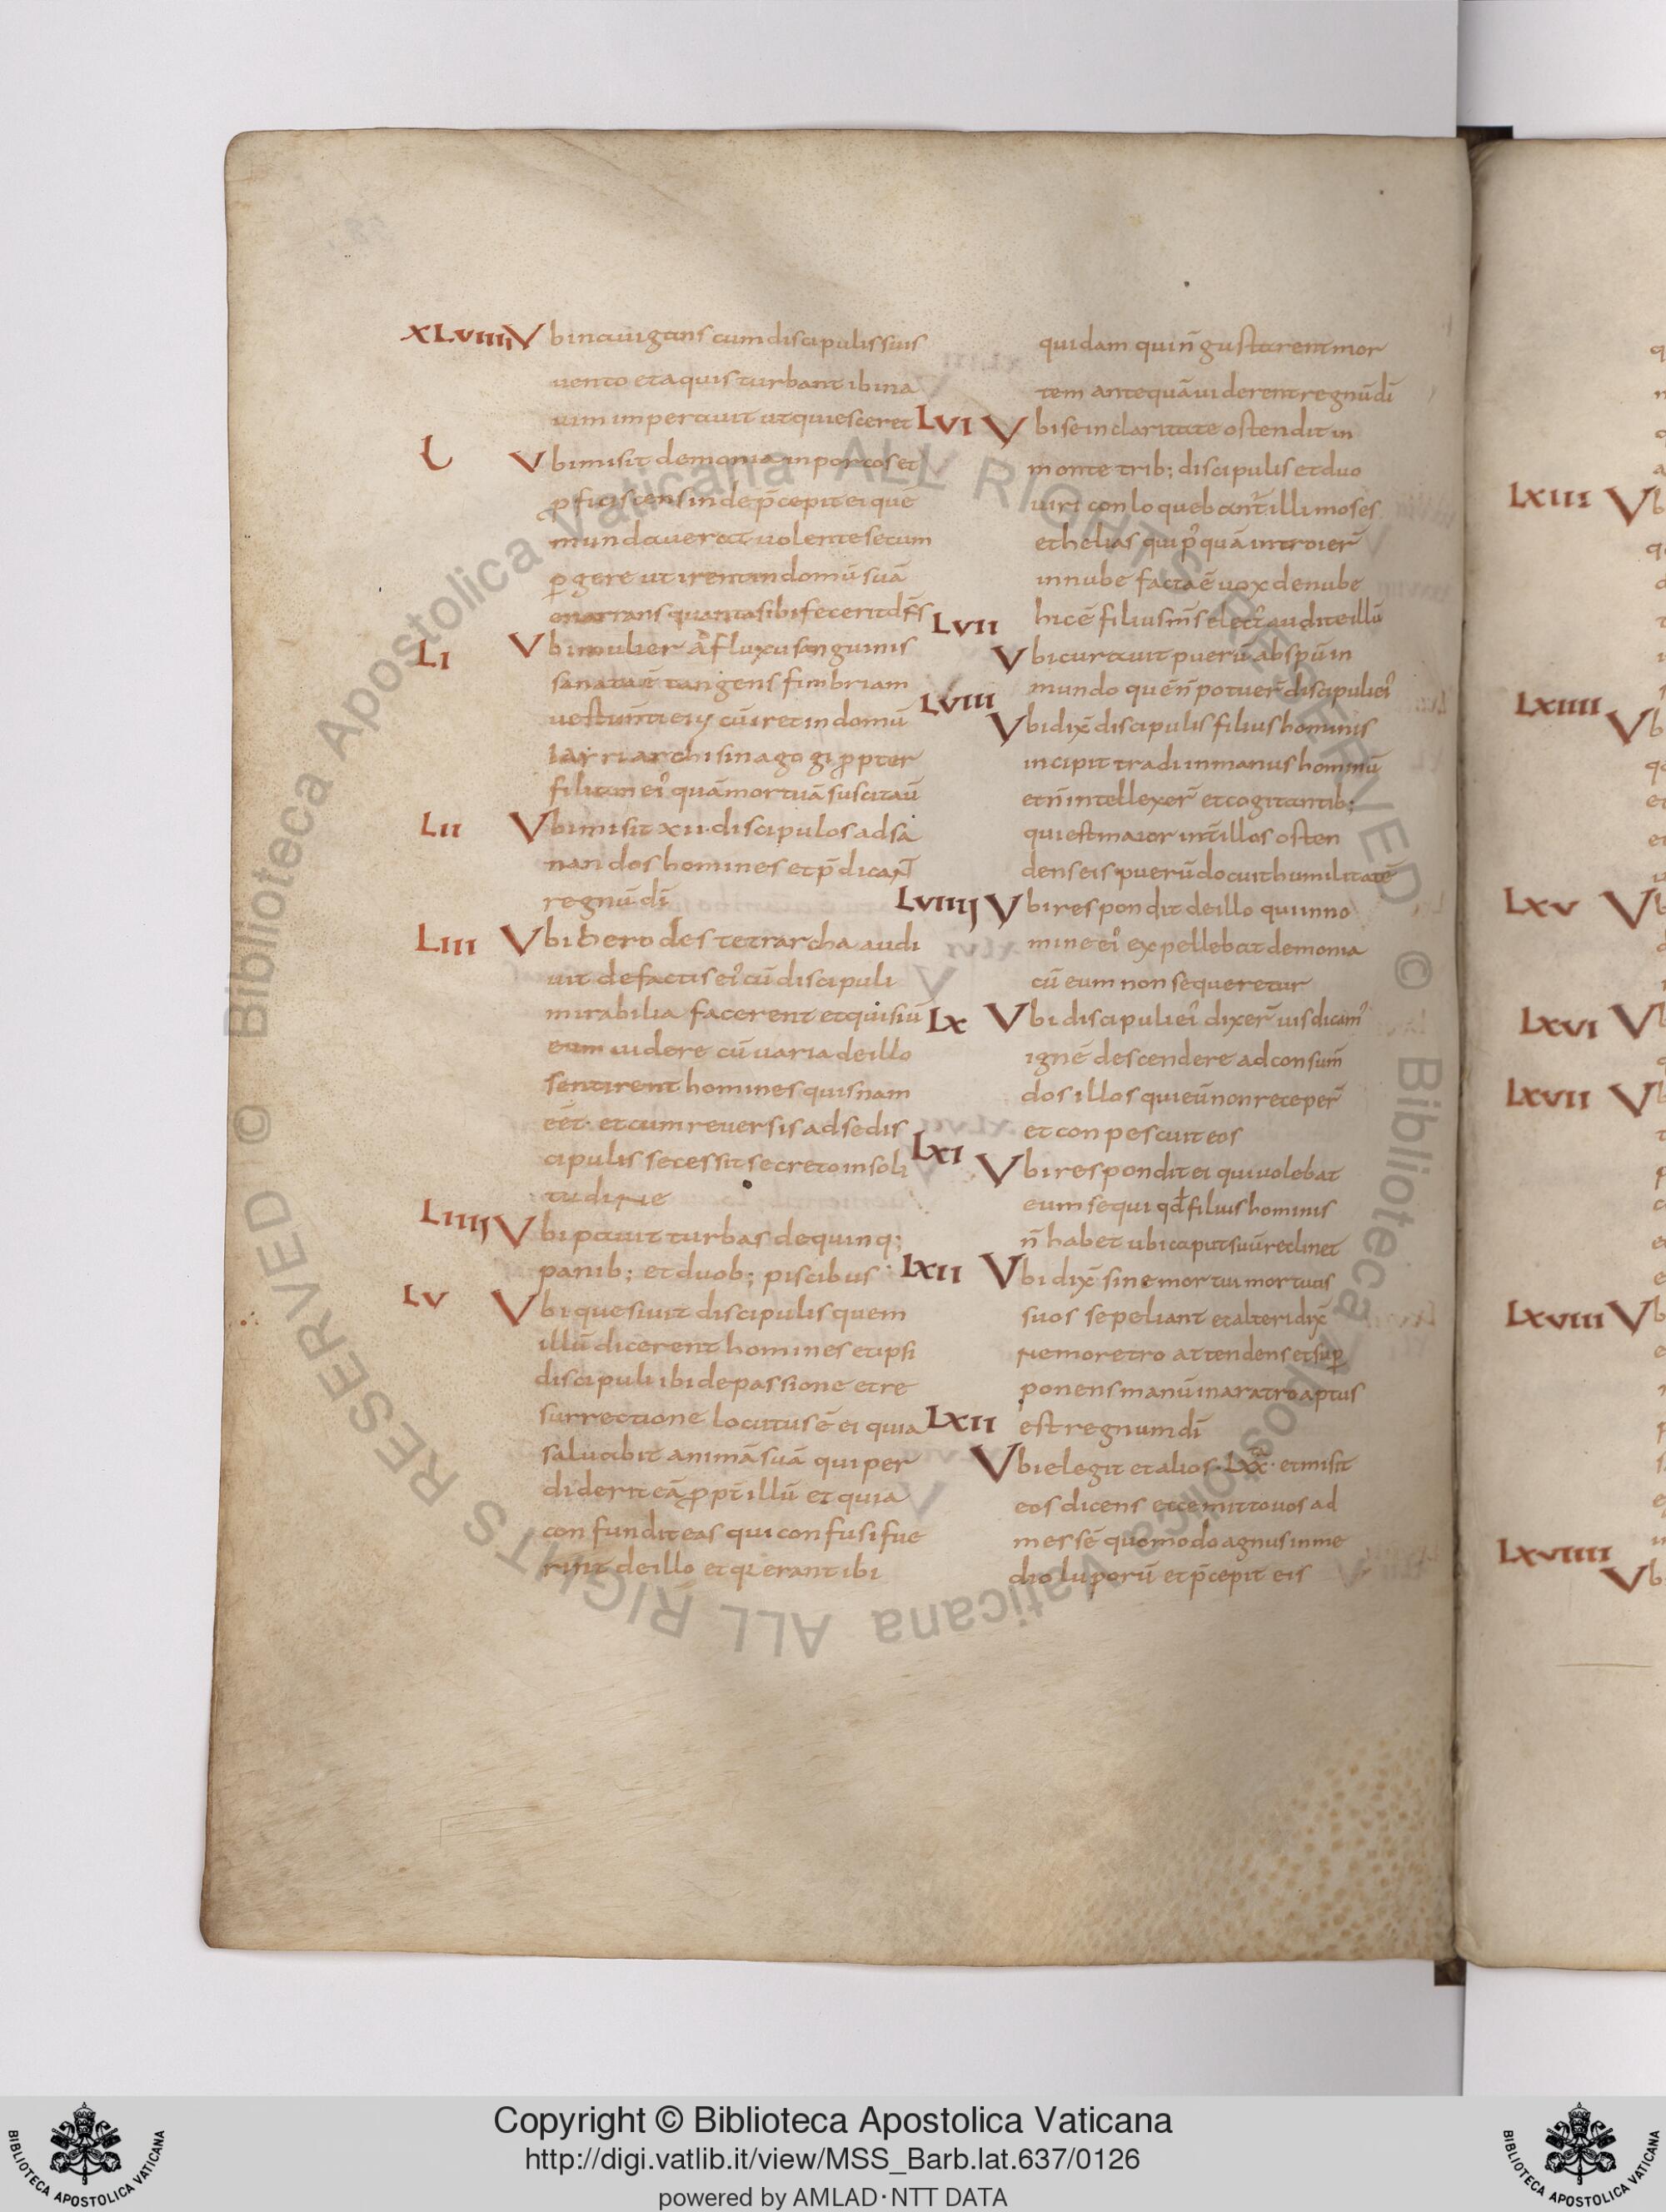 XLVIIII Vbi nauigans cum discipulis suis
uento et aquis turbant ibi na
uim imperauit ut quiesceret
L Vbi misit demonia in porcos et
ꝓficiscens inde p̄cepit ei que
mundauerat uolente secum
ꝑgere ut irent in domū suā
enarrans quanta sibi fecerit d̄s
LI Vbi mulier a fluxu sanguinis
sanata ē tangens fimbriam
uestimti eiꝰ cū iret in domū
iairi archisinagogi ꝓpter
filiam eiꝰ quā mortuā suscitaū
LII Vbi misit xii· discipulos ad sa
nandos homines et p̄dicaṝt
regnū dī
LIII Vbi herodes tetrarcha audi
uit de factis eiꝰ cū discipuli
mirabilia facerent et quisiū
eum uidere cū uaria de illo
sentirent homines quisnam
eēt· et cum reuersis ad se dis
cipulis secessit secreto in soli
tudine
LIIII Vbi pauit turbas de quinq;
panib; et duob; piscibus
LV Vbi quesiuit discipulis quem
illū dicerent homines et ipsi
discipuli ibi de passione et re
surrectione locutus ē ei quia
saluabit animā suā qui per
diderit eā ꝓpt̄ illū et quia
confundit eas qui confusi fue
rint de illo et q erant ibi
quidam qui n̄ gustarent mor
tem antequā uiderent regnū dī
LVI Vbi se in claritate ostendit in
monte trib; discipulis et duo
uiri conloquebant̄ illi moses
et helias qui pꝰquā introier̄
in nube facta ē uox de nube
hic ē filius m̄s elect' audite illū
LVII Vbi curauit puerū ab spū in
mundo quē n̄ potuer̄ discipuli eiꝰ
LVIII Vbi dix̄ discipulis filius hominis
incipit tradi in manus hominū
et n̄ intellexer̄ et cogitantib;
qui est maior int̄ illos osten
dens eis puerū docuit humilitatē
LVIIII Vbi respondit de illo qui in no
mine eiꝰ expellebat demonia
cū eum non sequeretur
LX Vbi discipuli eiꝰ dixer̄ uis dicamꝰ
ignē descendere ad consum̄
dos illos qui eū non receper̄
et conpescuit eos
LXI Vbi respondit ei qui uolebat
eum sequi qđ filius hominis
n̄ habet ubi caput suū reclinet
LXII Vbi dix̄ sine mortui mortuos
suos sepeliant et alteri dix̄
nemo retro attendens et suꝑ
ponens manū in aratro aptus
est regnum dī
LXII Vbi elegit et alios· LXX· et misit
eos dicens ecce mitto uos ad
messē quomodo agnus in me
dio luporū et p̄cepit eis
LXIII V
LXIIII V
LXV V
LXVI V
LXVII V
LXVIII V
LXVIIII
V
© Biblioteca Apostolica Vaticana ALL RIGHTS RESERVED © Biblioteca Apostolica Vaticana ALL RIGHTS RESERVED
Copyright © Biblioteca Apostolica Vaticana
http://digi.vatlib.it/view/MSS_Barb.lat.637/0126
powered by AMLAD·NTT DATA
BIBLIOTECA APOSTOLICA VATICANA
BIBLIOTECA APOSTOLICA VATICANA